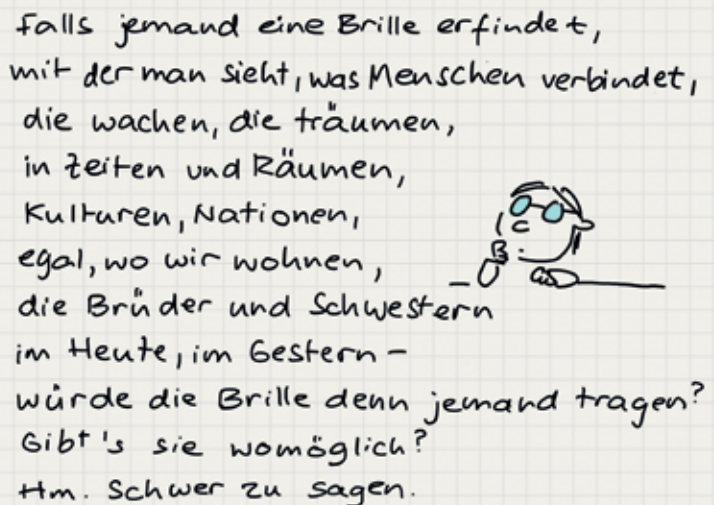 falls jemand eine Brille erfindet,
mit der man sieht, was Menschen verbindet,
die wachen, die träumen,
in Zeiten und Räumen,
Kulturen, Nationen,
egal, wo wir wohnen,
die Brüder und Schwestern
im Heute, im Gestern –
würde die Brille denn jemand tragen?
Gibt's sie womöglich?
Hm. Schwer zu sagen.